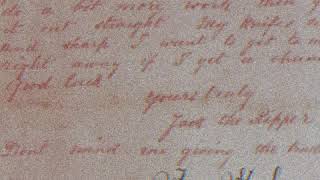 do a bit more work then g
it out straight My knifes n
and sharp I want to get to w
right away if I get a chanc
Good luck
yours truly
Jack the Ripper
Dont mind me giving the trad